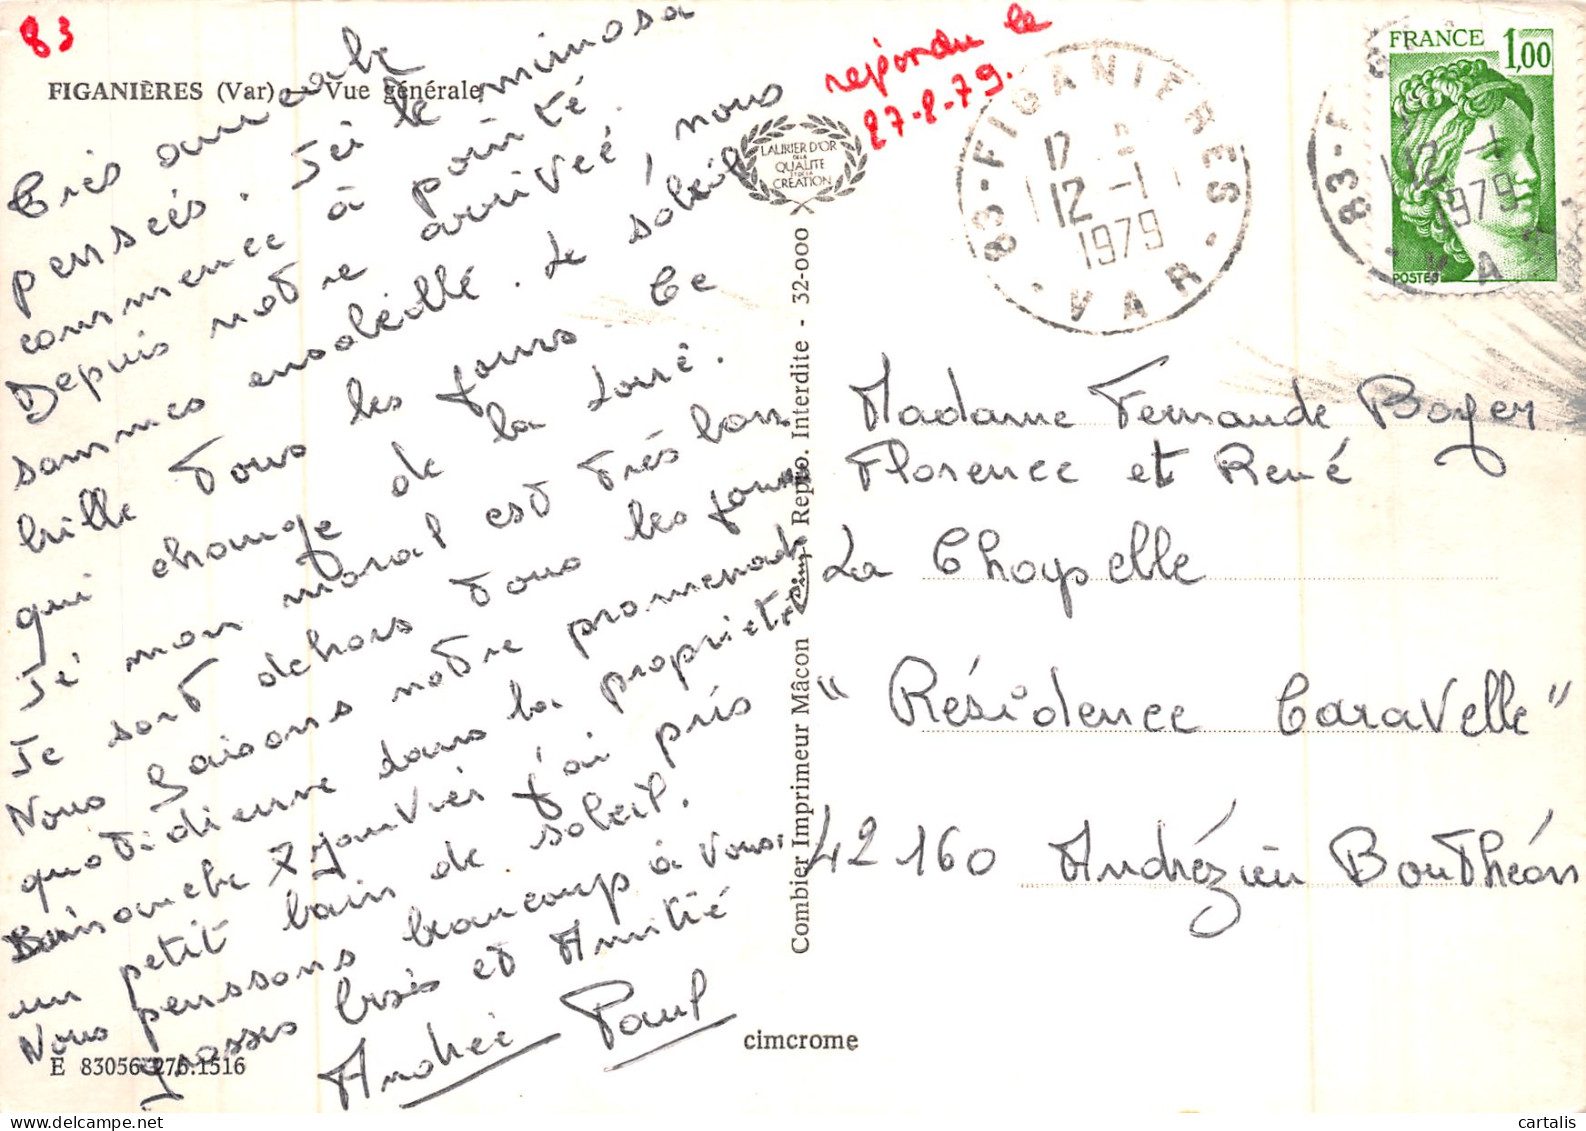 83
FIGANIÈRES (Var) — Vue générale
Très amicale
pensées. Ici le mimosa
commence à pointé.
Depuis notre arriveé, nous
sommes ensoleillé. Le soleil
brille tous les jours. Ce
qui change de la Loire.
Je mon moral est très bon
Je sort dehors tous les jours
Nous faisons notre promenade
quotidienne dans la propriété
Dimanche 7 janvier j'ai pris
un petit bain de soleil.
Nous penssons beaucoup à vous.
grosses bises et Amitié
Andrée Paul
E 83056 275.1516
LAURIER D'OR
DE LA
QUALITE
ET DE LA
CREATION
repondu le
27-8-79.
83-FIGANIERES
12-1
1979
VAR
83-F
12-1
1979
VAR
FRANCE 1,00
POSTES
Combier Imprimeur Mâcon Repro. Interdite - 32-000
Madame Fernande Boyer
Florence et René
La Chapelle
"Résidence Caravelle"
42160 Andrézieu Bouthéon
cimcrome
cartalis